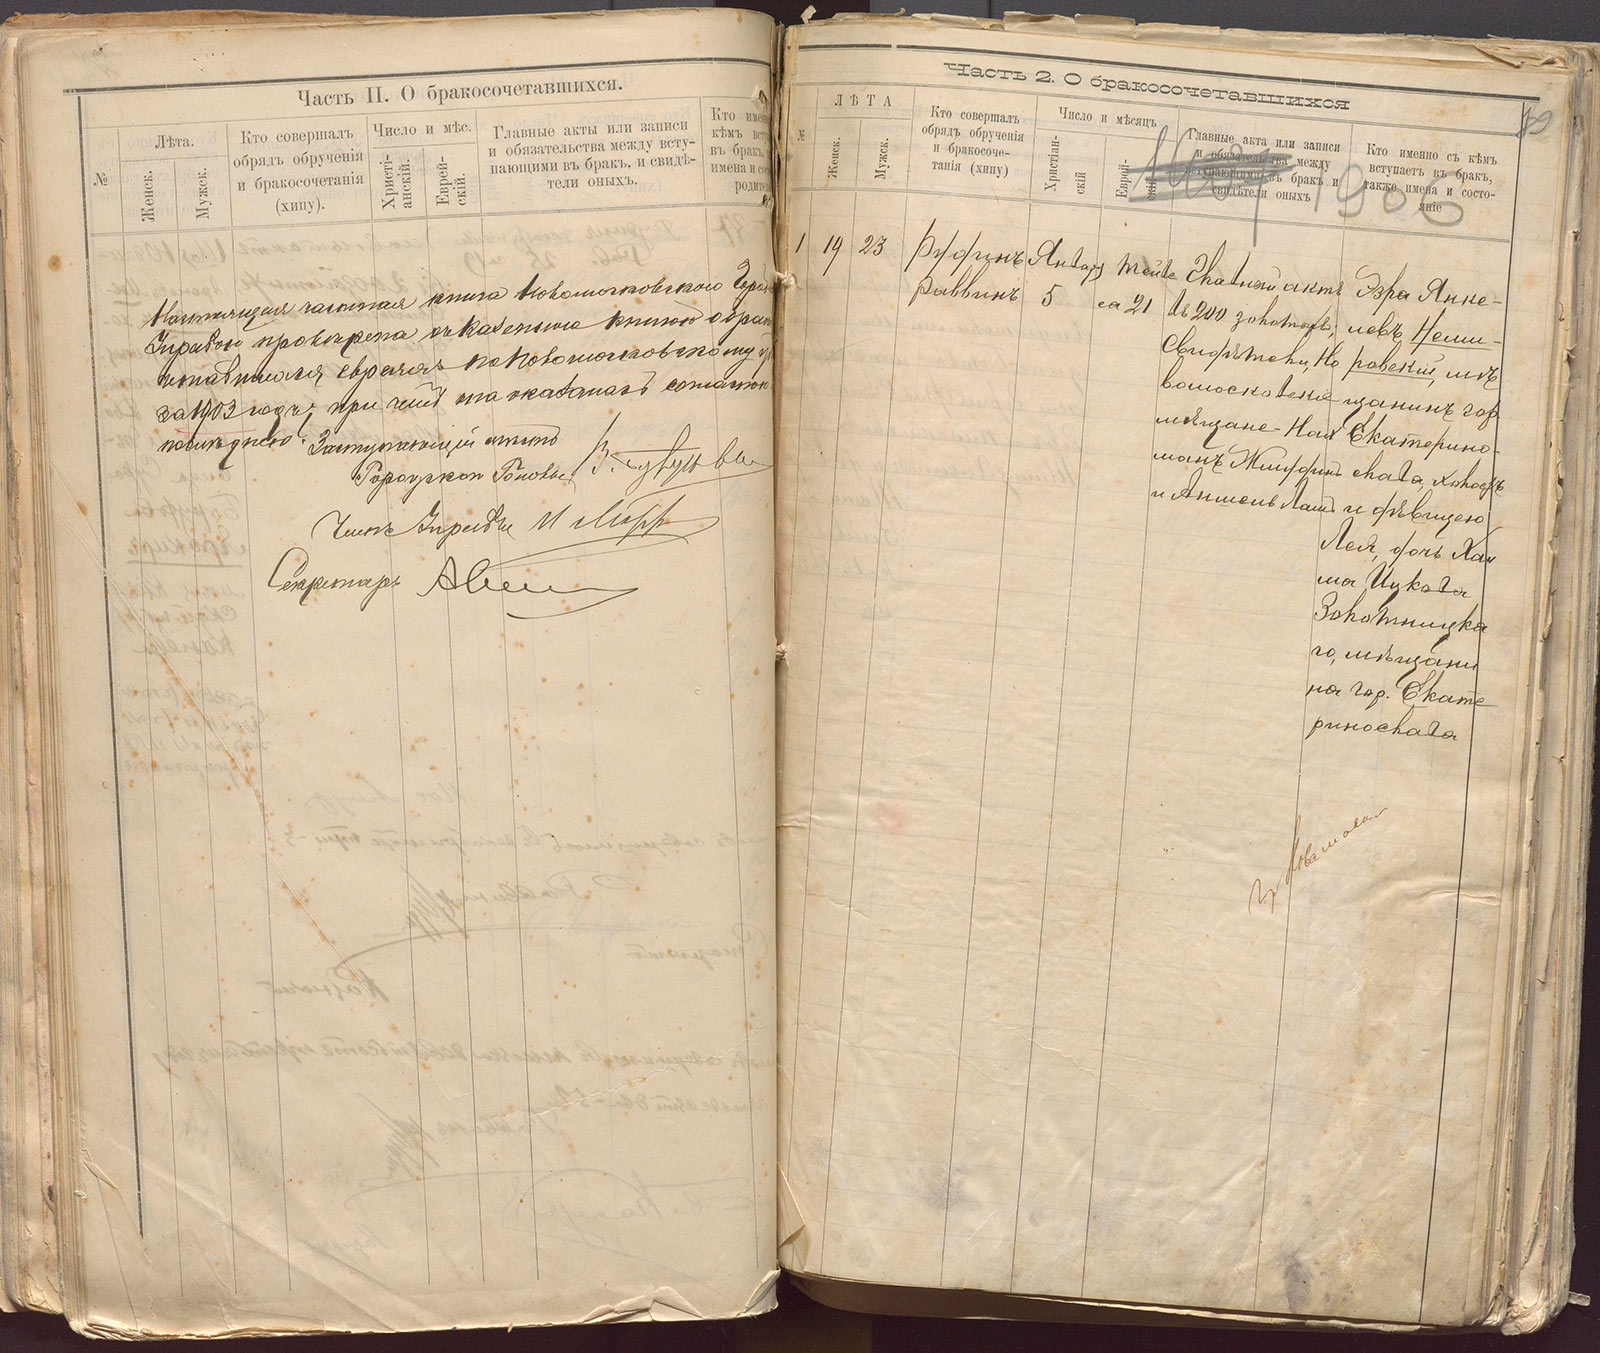 Часть II. О бракосочетавшихся.
№
Лѣта.
Женск.
Мужск.
Кто совершалъ
обрядъ обрученія
и бракосочетанія
(хипу).
Число и мѣс.
Христі-
анскій.
Еврей-
скій.
Главные акты или записи
и обязательства между всту-
пающими въ бракъ, и свидѣ-
тели оныхъ.
Кто имен
кѣмъ вст
въ бракъ,
имена и со
родител
Настоящая частная книга Новомосковскою Город
Управою провѣрена съ казенною книгою о брако
сочетавшихся евреяхъ по Новомосковскому
за 1903 годъ, при чемъ она оказалась согласною
послѣднею. Заступающій мѣсто
Городского Головы
Членъ Управы
Секретарь
Часть 2. О бракосочетавшихся
1906
№
ЛѢТА
Женск.
Мужск.
Кто совершалъ
обрядъ обрученія
и бракосоче-
танія (хипу)
Число и мѣсяцъ
Христіан-
скій
Еврей-
скій
Главныя акта или записи
и обязательства между
вступающими въ бракъ и
свидѣтели оныхъ
Кто именно съ кѣмъ
вступаетъ въ бракъ,
также имена и состо-
яніе
1 19 23
Раввинъ
Января
5
Тейвеса 21
Главный актъ
въ 200 золотыхъ;
свидѣтели, Но
вомосковскіе
мѣщане - Нах
манъ
и Аншель
Эзра Янке-
левъ Неми-
ровскій, мѣ
щанинъ гор.
Екатерино-
слава, холостъ
и дѣвицею
Лея, дочь Хаи
ма Ицкова
Золотницка
го, мѣщани
на гор. Екате
ринослава